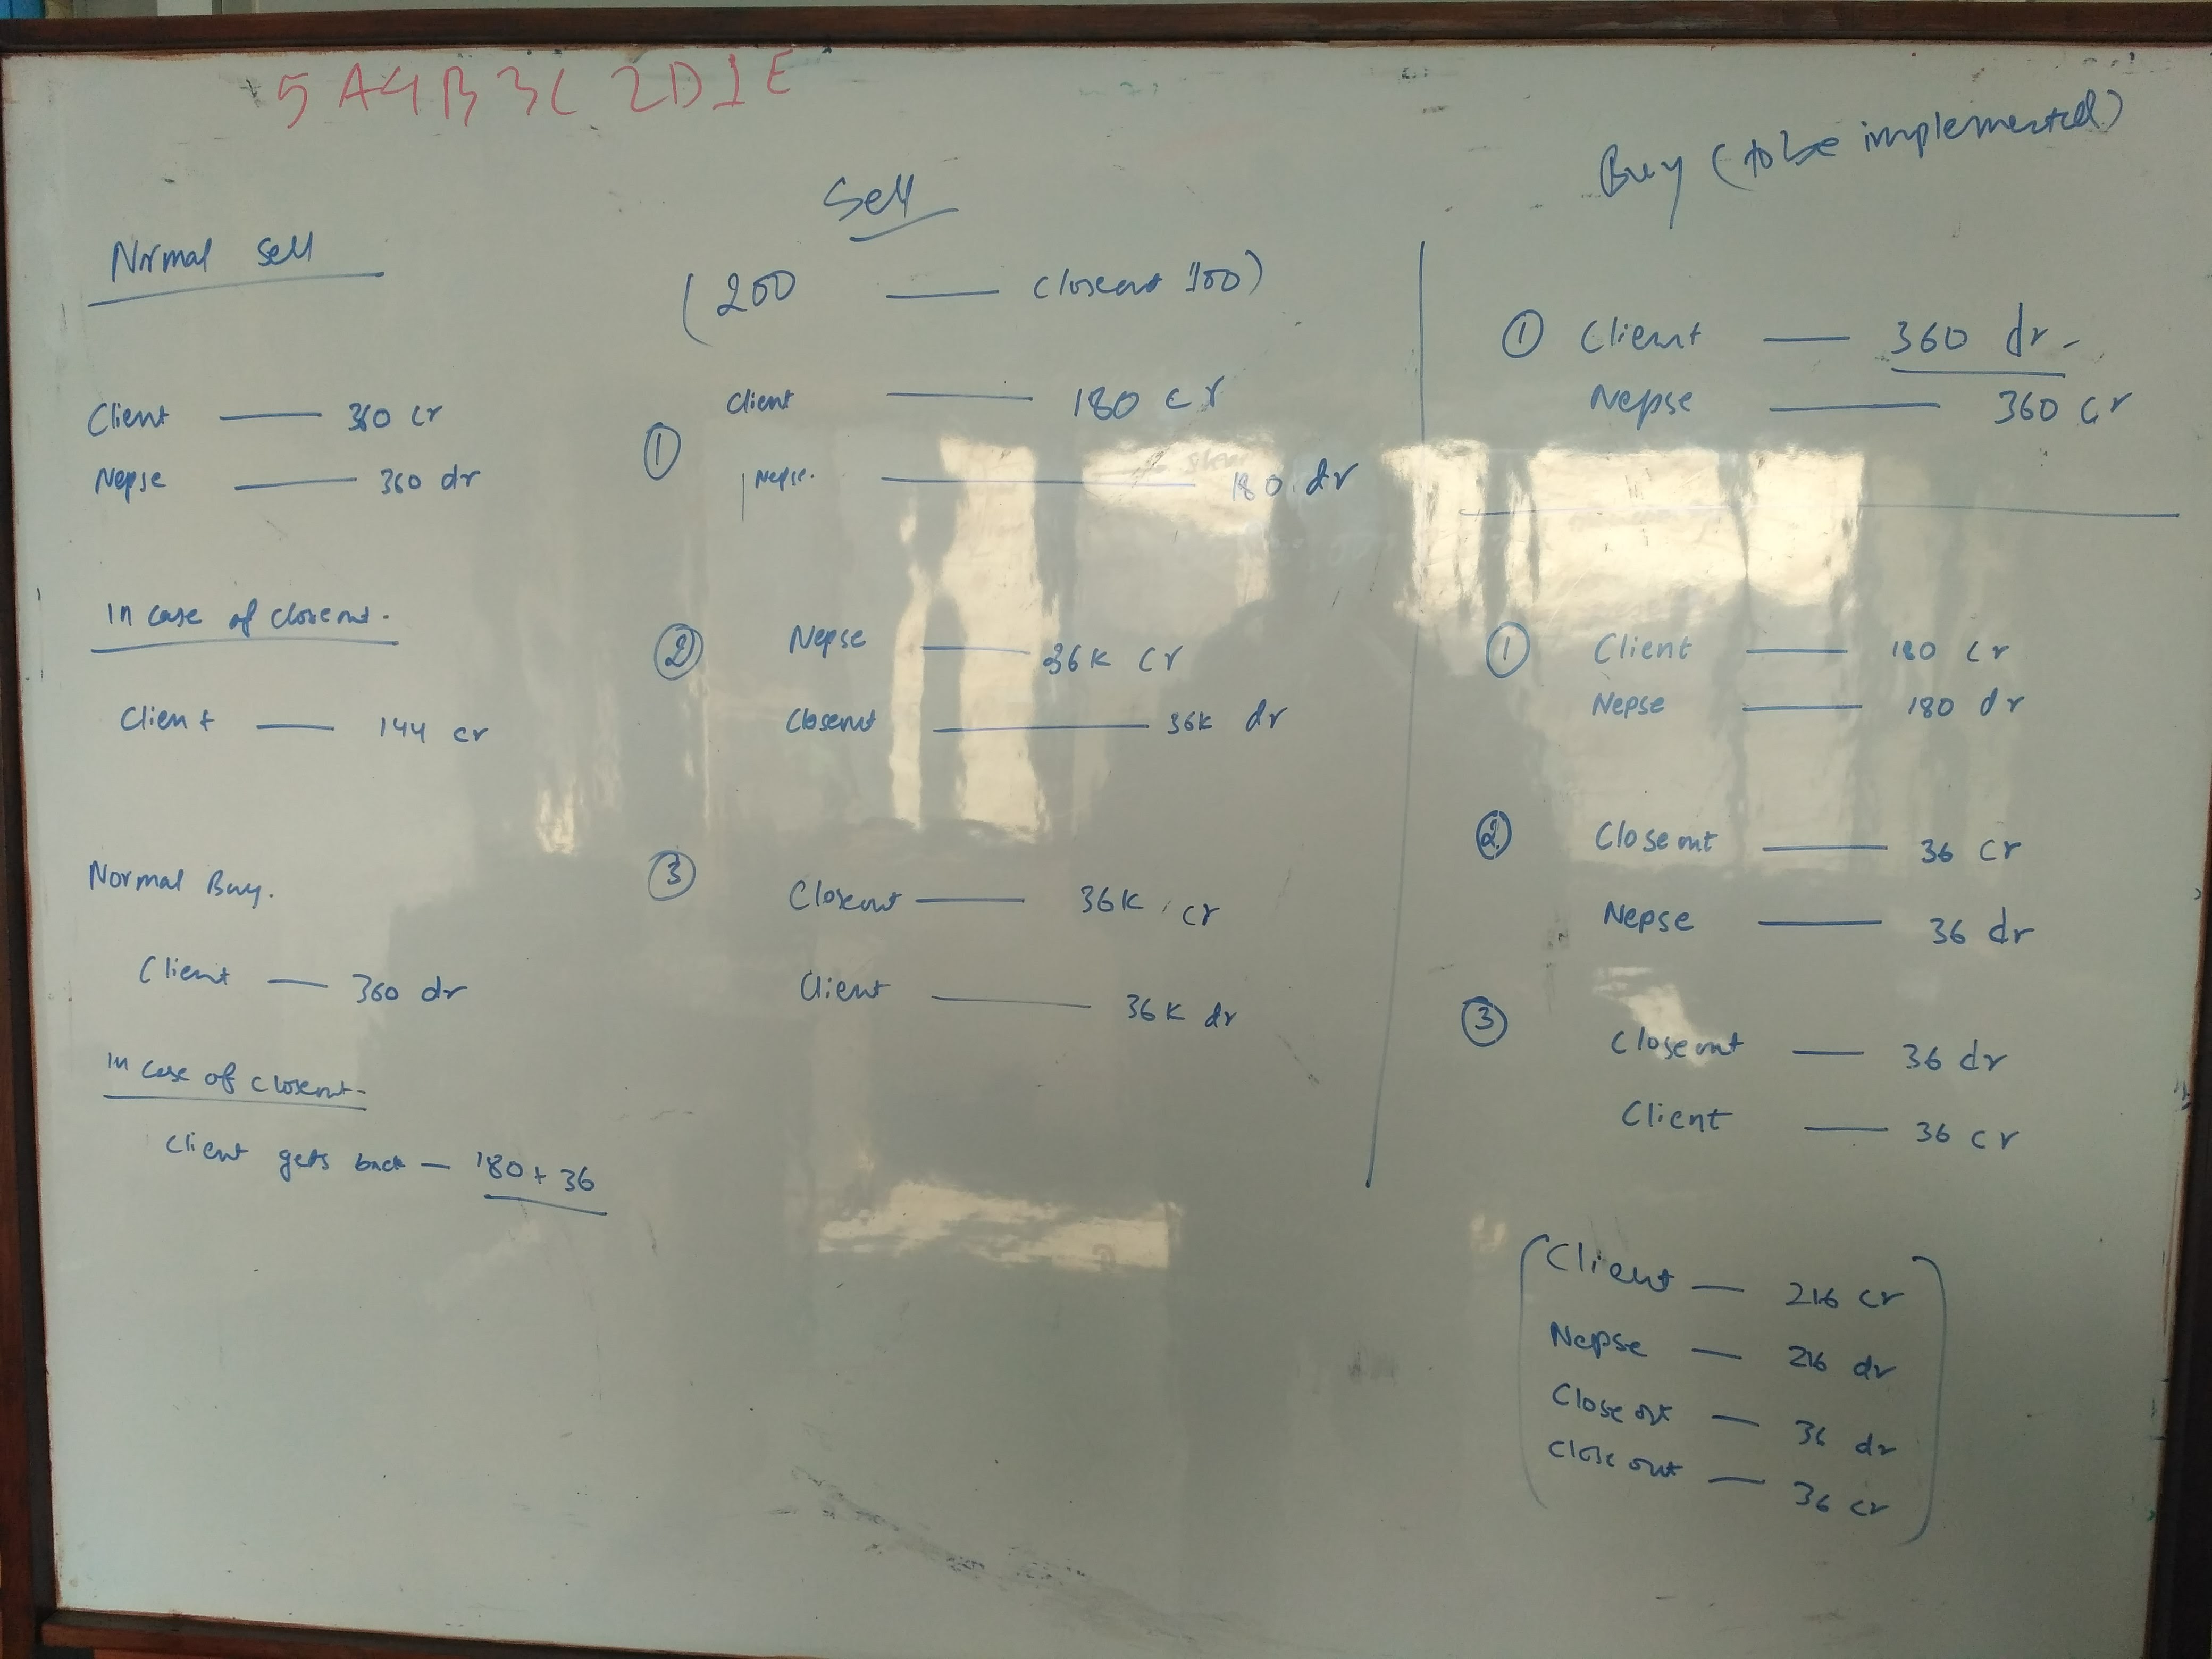 5A4B3C2D1E
Normal sell
Client — 360 cr
Nepse — 360 dr
In case of closeout.
Client — 144 cr
Normal Buy.
Client — 360 dr
In case of closeout-
Client gets back — 180 + 36
Sell
(200 — closeout 100)
① Client — 180 cr
Nepse. — 180 dr
② Nepse — 36K cr
Closeout — 36K dr
③ Closeout — 36K cr
Client — 36K dr
Buy (to be implemented)
① Client — 360 dr -
Nepse — 360 cr
① Client — 180 cr
Nepse — 180 dr
② Closeout — 36 cr
Nepse — 36 dr
③ Closeout — 36 dr
Client — 36 cr
Client — 216 cr
Nepse — 216 dr
Closeout — 36 dr
Closeout — 36 cr